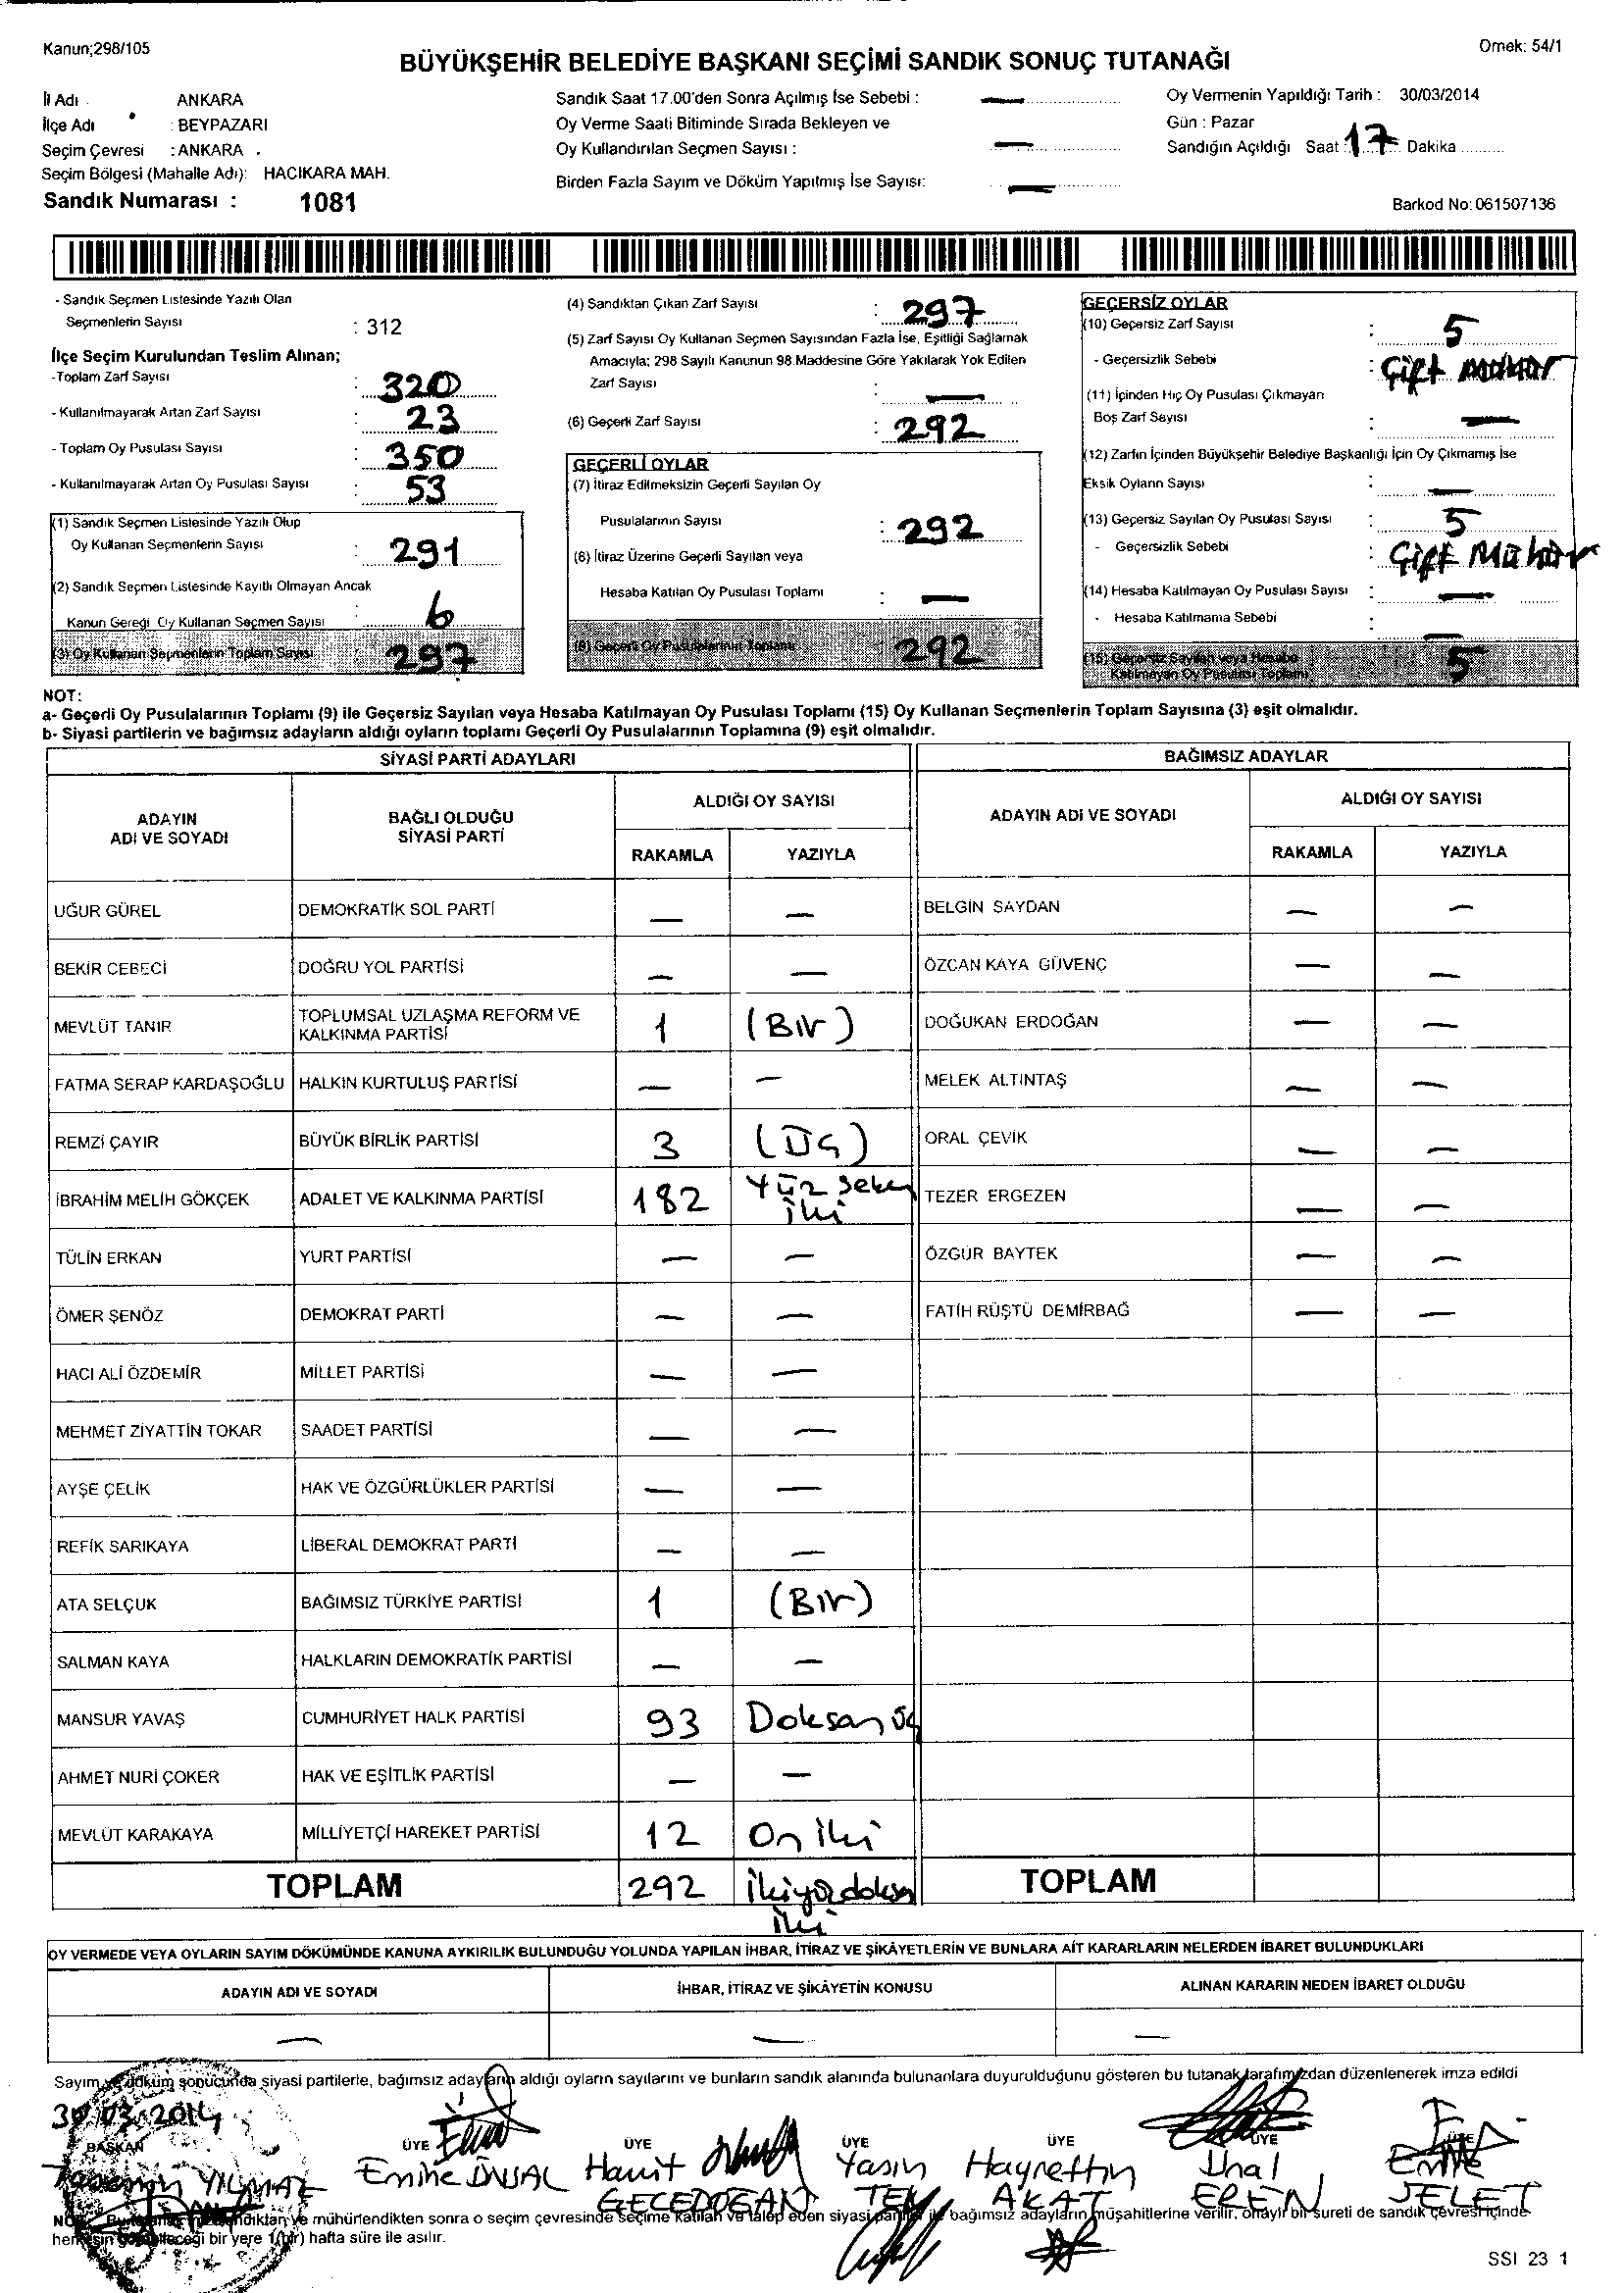 Kanun;298/105
Örnek: 54/1
BÜYÜKŞEHİR BELEDİYE BAŞKANI SEÇİMİ SANDIK SONUÇ TUTANAĞI
İl Adı ANKARA
İlçe Adı : BEYPAZARI
Seçim Çevresi : ANKARA
Seçim Bölgesi (Mahalle Adı): HACIKARA MAH.
Sandık Numarası : 1081
Sandık Saat 17.00'den Sonra Açılmış İse Sebebi : —
Oy Verme Saati Bitiminde Sırada Bekleyen ve
Oy Kullandırılan Seçmen Sayısı : —
Birden Fazla Sayım ve Döküm Yapılmış İse Sayısı: —
Oy Vermenin Yapıldığı Tarih : 30/03/2014
Gün : Pazar
Sandığın Açıldığı Saat : 17 Dakika
Barkod No: 061507136
- Sandık Seçmen Listesinde Yazılı Olan
Seçmenlerin Sayısı : 312
İlçe Seçim Kurulundan Teslim Alınan;
-Toplam Zarf Sayısı : 320
- Kullanılmayarak Artan Zarf Sayısı : 23
- Toplam Oy Pusulası Sayısı : 350
- Kullanılmayarak Artan Oy Pusulası Sayısı : 53
(1) Sandık Seçmen Listesinde Yazılı Olup
Oy Kullanan Seçmenlerin Sayısı : 291
(2) Sandık Seçmen Listesinde Kayıtlı Olmayan Ancak
Kanun Gereği Oy Kullanan Seçmen Sayısı : 6
(3) Oy Kullanan Seçmenlerin Toplam Sayısı : 297
(4) Sandıktan Çıkan Zarf Sayısı : 297
(5) Zarf Sayısı Oy Kullanan Seçmen Sayısından Fazla İse, Eşitliği Sağlamak
Amacıyla; 298 Sayılı Kanunun 98.Maddesine Göre Yakılarak Yok Edilen
Zarf Sayısı : —
(6) Geçerli Zarf Sayısı : 292
GEÇERLİ OYLAR
(7) İtiraz Edilmeksizin Geçerli Sayılan Oy
Pusulalarının Sayısı : 292
(8) İtiraz Üzerine Geçerli Sayılan veya
Hesaba Katılan Oy Pusulası Toplamı : —
(9) Geçerli Oy Pusulalarının Toplamı : 292
GEÇERSİZ OYLAR
(10) Geçersiz Zarf Sayısı : 5
- Geçersizlik Sebebi : Çift Mühür
(11) İçinden Hiç Oy Pusulası Çıkmayan
Boş Zarf Sayısı : —
(12) Zarfın İçinden Büyükşehir Belediye Başkanlığı İçin Oy Çıkmamış İse
Eksik Oyların Sayısı : —
(13) Geçersiz Sayılan Oy Pusulası Sayısı : 5
- Geçersizlik Sebebi : Çift Mühür
(14) Hesaba Katılmayan Oy Pusulası Sayısı : —
- Hesaba Katılmama Sebebi : —
(15) Geçersiz Sayılan veya Hesaba
Katılmayan Oy Pusulası Toplamı 5
NOT:
a- Geçerli Oy Pusulalarının Toplamı (9) ile Geçersiz Sayılan veya Hesaba Katılmayan Oy Pusulası Toplamı (15) Oy Kullanan Seçmenlerin Toplam Sayısına (3) eşit olmalıdır.
b- Siyasi partilerin ve bağımsız adayların aldığı oyların toplamı Geçerli Oy Pusulalarının Toplamına (9) eşit olmalıdır.
SİYASİ PARTİ ADAYLARI
ADAYIN
ADI VE SOYADI
BAĞLI OLDUĞU
SİYASİ PARTİ
ALDIĞI OY SAYISI
RAKAMLA YAZIYLA
UĞUR GÜREL DEMOKRATİK SOL PARTİ — —
BEKİR CEBECİ DOĞRU YOL PARTİSİ — —
MEVLÜT TANIR TOPLUMSAL UZLAŞMA REFORM VE KALKINMA PARTİSİ 1 (Bir)
FATMA SERAP KARDAŞOĞLU HALKIN KURTULUŞ PARTİSİ — —
REMZİ ÇAYIR BÜYÜK BİRLİK PARTİSİ 3 (Üç)
İBRAHİM MELİH GÖKÇEK ADALET VE KALKINMA PARTİSİ 182 Yüz Seksen iki
TÜLİN ERKAN YURT PARTİSİ — —
ÖMER ŞENÖZ DEMOKRAT PARTİ — —
HACI ALİ ÖZDEMİR MİLLET PARTİSİ — —
MEHMET ZİYATTİN TOKAR SAADET PARTİSİ — —
AYŞE ÇELİK HAK VE ÖZGÜRLÜKLER PARTİSİ — —
REFİK SARIKAYA LİBERAL DEMOKRAT PARTİ — —
ATA SELÇUK BAĞIMSIZ TÜRKİYE PARTİSİ 1 (Bir)
SALMAN KAYA HALKLARIN DEMOKRATİK PARTİSİ — —
MANSUR YAVAŞ CUMHURİYET HALK PARTİSİ 93 Doksan üç
AHMET NURİ ÇOKER HAK VE EŞİTLİK PARTİSİ — —
MEVLÜT KARAKAYA MİLLİYETÇİ HAREKET PARTİSİ 12 On iki
TOPLAM 292 İkiyüzdoksan iki
BAĞIMSIZ ADAYLAR
ADAYIN ADI VE SOYADI
ALDIĞI OY SAYISI
RAKAMLA YAZIYLA
BELGİN SAYDAN — —
ÖZCAN KAYA GÜVENÇ — —
DOĞUKAN ERDOĞAN — —
MELEK ALTINTAŞ — —
ORAL ÇEVİK — —
TEZER ERGEZEN — —
ÖZGÜR BAYTEK — —
FATİH RÜŞTÜ DEMİRBAĞ — —
TOPLAM
OY VERMEDE VEYA OYLARIN SAYIM DÖKÜMÜNDE KANUNA AYKIRILIK BULUNDUĞU YOLUNDA YAPILAN İHBAR, İTİRAZ VE ŞİKÂYETLERİN VE BUNLARA AİT KARARLARIN NELERDEN İBARET BULUNDUKLARI
ADAYIN ADI VE SOYADI İHBAR, İTİRAZ VE ŞİKÂYETİN KONUSU ALINAN KARARIN NEDEN İBARET OLDUĞU
— — —
Sayım ve döküm sonucunda siyasi partilerle, bağımsız adayların aldığı oyların sayılarını ve bunların sandık alanında bulunanlara duyurulduğunu gösteren bu tutanak tarafımızdan düzenlenerek imza edildi
30.03.2014
BAŞKAN ÜYE ÜYE ÜYE ÜYE ÜYE ÜYE
YILMAZ
Emine ÜNSAL
Hamit GECEDOĞAN
Yasin TEK
Hayrettin AKAT
Ünal EREN
Emine
mühürlendikten sonra o seçim çevresinde seçime katılan ve talep eden siyasi partiler ile bağımsız adayların müşahitlerine verilir. onaylı bir sureti de sandık çevresi içinde
herkesin görebileceği bir yere 1(bir) hafta süre ile asılır.
SSI 23 1